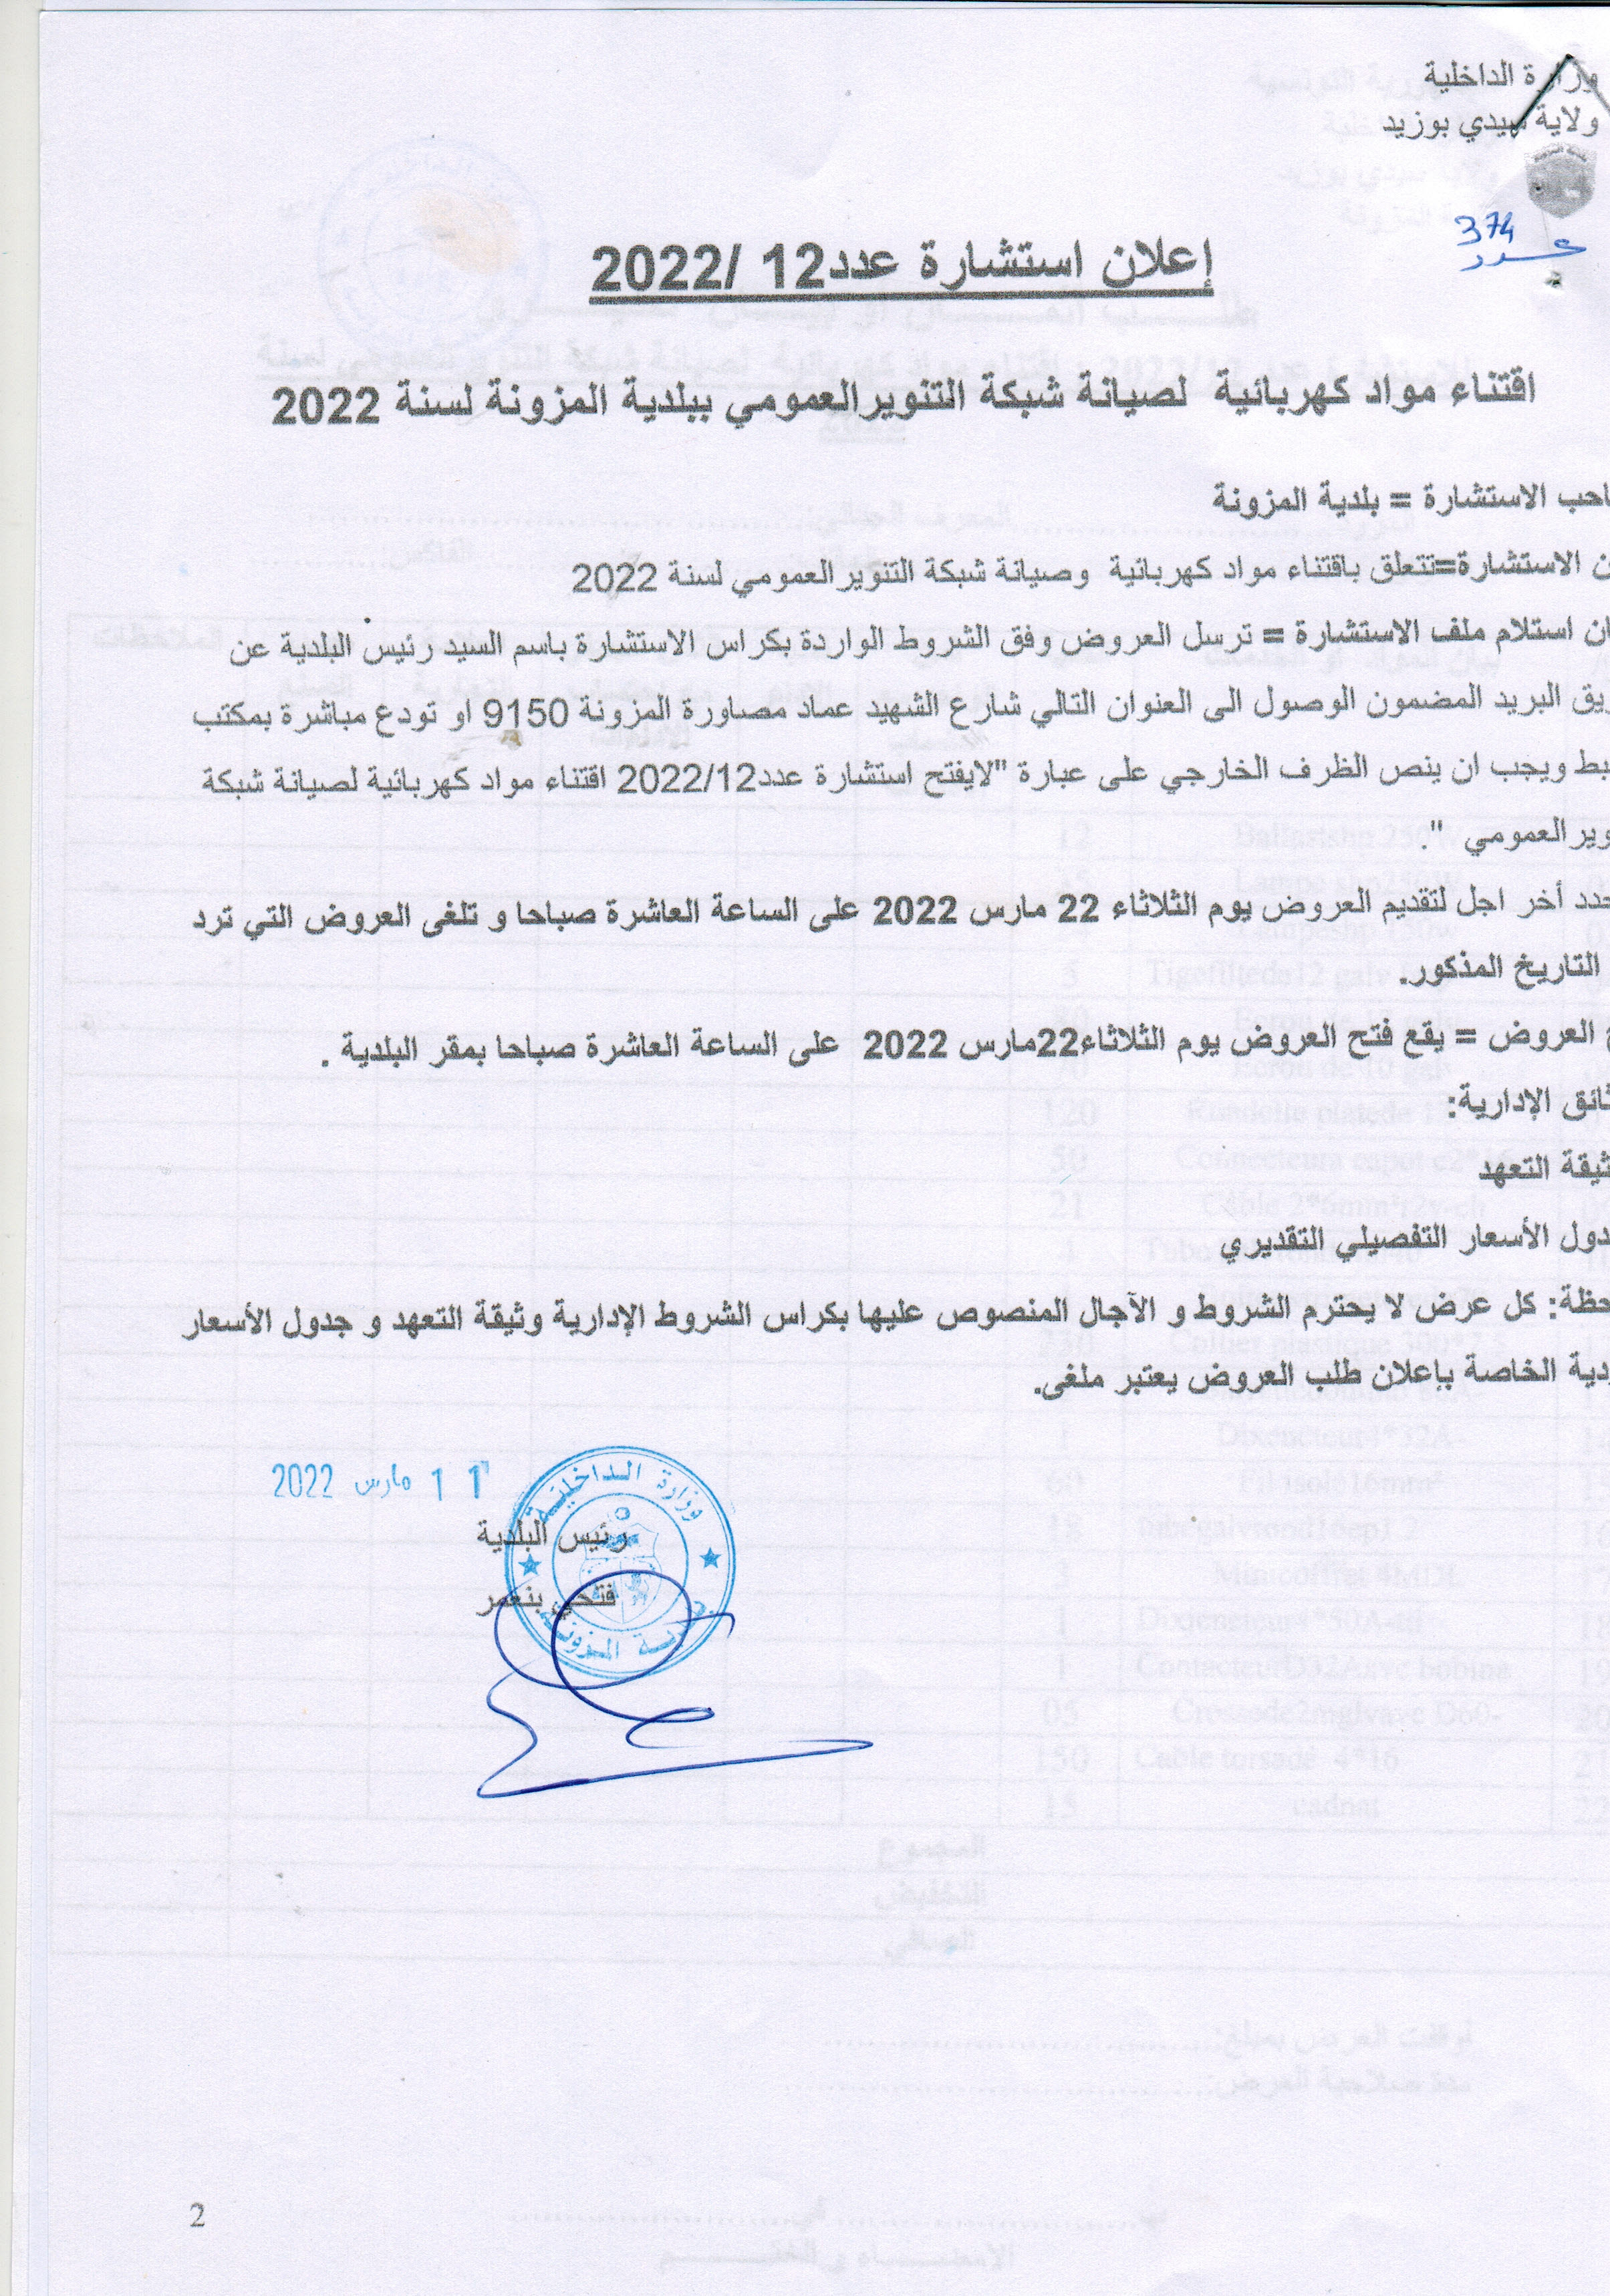 وزارة الداخلية
ولاية سيدي بوزيد
374
عدد
إعلان استشارة عدد12 /2022
اقتناء مواد كهربائية لصيانة شبكة التنويرالعمومي ببلدية المزونة لسنة 2022
احب الاستشارة = بلدية المزونة
ن الاستشارة=تتعلق باقتناء مواد كهربائية وصيانة شبكة التنويرالعمومي لسنة 2022
ان استلام ملف الاستشارة = ترسل العروض وفق الشروط الواردة بكراس الاستشارة باسم السيد رئيس البلدية عن
ريق البريد المضمون الوصول الى العنوان التالي شارع الشهيد عماد مصاورة المزونة 9150 او تودع مباشرة بمكتب
بط ويجب ان ينص الظرف الخارجي على عبارة "لايفتح استشارة عدد2022/12 اقتناء مواد كهربائية لصيانة شبكة
ويرالعمومي ".
حدد أخر اجل لتقديم العروض يوم الثلاثاء 22 مارس 2022 على الساعة العاشرة صباحا و تلغى العروض التي ترد
التاريخ المذكور.
ح العروض = يقع فتح العروض يوم الثلاثاء22مارس 2022 على الساعة العاشرة صباحا بمقر البلدية .
ثائق الإدارية:
ثيقة التعهد
دول الأسعار التفصيلي التقديري
حظة: كل عرض لا يحترم الشروط و الآجال المنصوص عليها بكراس الشروط الإدارية وثيقة التعهد و جدول الأسعار
ردية الخاصة بإعلان طلب العروض يعتبر ملغى.
11 مارس 2022
وزارة الداخلية
رئيس البلدية
فتحي بنعمر
بلدية المزونة
2